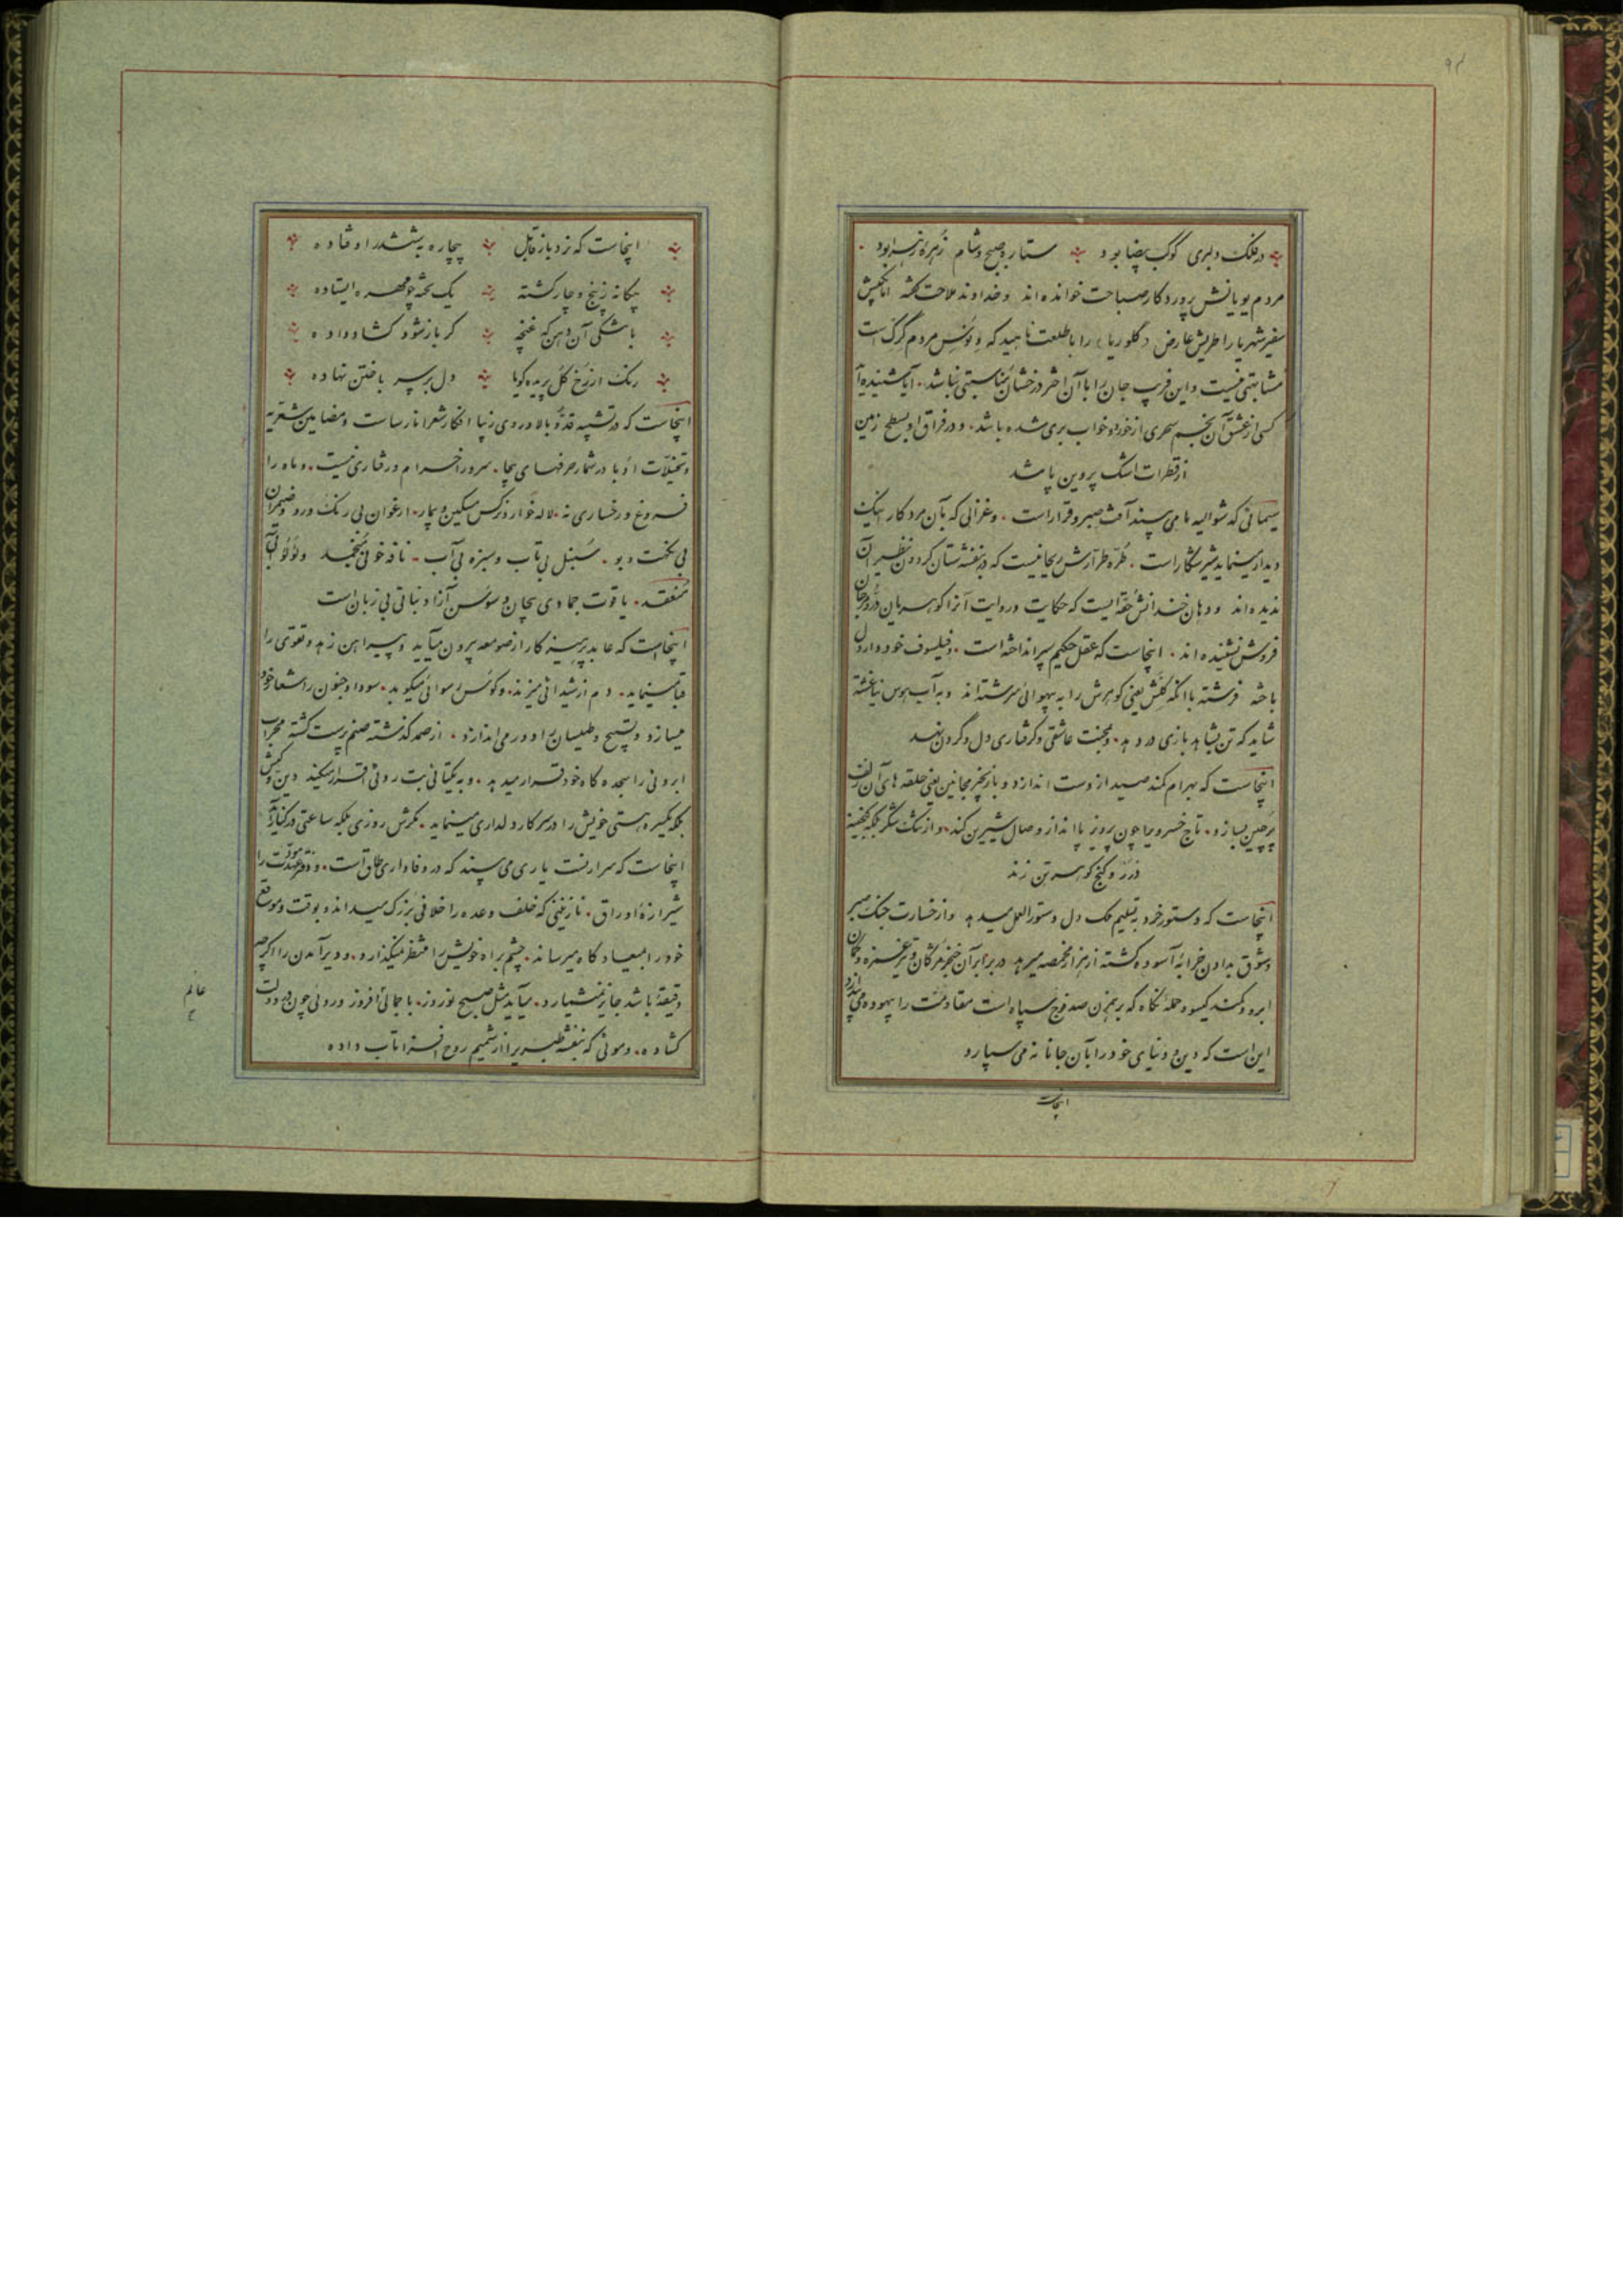 ۹۳
در فلک دلبری کوکب بیضا بود ستاره صبح و شام زهره زهرا بود
مردم یونانش پروردگار صباحت خوانده‌اند و خداوند ملاحت گفته اما بکیش
سفیر شهریار اطریش عارض (گلوریا) را با طلعت ناهید که ونوس مردم گرک است
مشابهتی نیست و این فریب جان را با آن اختر درخشان مناسبتی نباشد. آیا شنیده‌اید
کسی از عشق آن نجم سحری از خورد و خواب بری شده باشد. و در فراق او بسطح زمین
از قطرات اشک پروین پاشد
سیمائی که شوالیه ما می‌پسند آفت صبر و قرار است. و غزالی که بآن مرد کار اینک
دیدار مینماید شیر شکار است. طره طرارش ریحانیست که در بنفشه‌ستان گردون نظیر آن
ندیده‌اند و دهان خندانش حقه‌ایست که حکایت و روایت آنرا گوهریان در و مرجان
فروش نشنیده‌اند. اینجاست که عقل حکیم سپر انداخته است. و فیلسوف خود دار دل
باخته فرشته با آنکه گلش یعنی گوهرش را به بیهوائی سرشته‌اند و به آب هوس نیاغشته
شاید که تن بشاهد بازی در دهد. و بمحنت عاشقی و گرفتاری دل و گردن نهد
اینجاست که بهرام کمند صید از دست اندازد و با زنجیر مجانین یعنی حلقه های آن زلف
پرچین بسازد. تاج خسرو یا چون پرویز پا انداز وصال شیرین کند. و از تنگ شکر بلکه گنجینه
زر و گنج گوهر تن زند
اینجاست که دستور خرد به تسلیم ملک دل دستورالعمل میدهد و از خسارت جنگ صبر
و شوق بدادن خرابه آسوده گشته از هزار مخمصه میرهد در برابر آن خنجر مژگان و تیر غمزه و کمان
ابرو و کمند گیسو و حمله نگاه که برهمزن صد فوج سپاه است مقاومت را بیهوده می‌پندارد
این است که دین و دنیای خود را بآن جانانه می‌سپارد
اینجاست
اینجاست که نرد باز قابل بیچاره بششدر اوفتاده
بیگانه ز پنج و چار گشته یک تخته چو مهره ایستاده
با شکی آن دهن که غنچه گر باز شود گشاد داده
رنگ از رخ گل پریده گویا دل بر سر باختن نهاده
اینجاست که در تشبیه قد و بالا و روی زیبا افکار شعرا نارساست و مضامین شعریه
و تخیلات ادبا در شمار حرفهای بیجا. سرو را خرام و رفتاری نیست. و ماه را
فروغ و رخساری نه. لاله خوار و نرگس مسکین و بیمار. ارغوان بی رنگ و رو و ضیمران
بی نکهت و بو. سنبل بی تاب و سبزه بی آب. نافه خونی منجمد و لؤلؤ آبی
منعقد. یاقوت جمادی بیجان و سوسن آزاد نباتی بی زبان است
اینجاست که عابد پرهیزکار از صومعه بیرون میآید و پیراهن زهد و تقوی را
قبا مینماید. دم از شیدائی میزند. و کوس رسوائی میکوبد. سودا و جنون را شعار خود
میسازد و تسبیح و طیلسان را دور می‌اندازد. از صمد گذشته صنم پرست گشته محراب
ابروئی را سجده گاه خود قرار میدهد. و به یکتائی بت روئی اقرار میکند دین و کیش
بلکه یکسره هستی خویش را در سر کار دلداری مینماید. مگرش روزی بلکه ساعتی در کنار آید
اینجاست که سر ارنست یاری می‌پسند که در وفاداری طاق است. و دفتر عهد مودت را
شیرازه اوراق. نازنینی که خلف وعده را خلافی بزرگ میداند و بوقت و موقع
خود را بمیعادگاه میرساند. چشم براه خویش را منتظر نمیگذارد. و دیر آمدن را اگرچه
دقیقه باشد جایز نمیشمارد. میآید مثل صبح نوروز. با جمالی افروز و روئی چون در دولت
گشاده. و موئی که بنفشه طبری را از شمیم روح افزا تاب داده
عالم